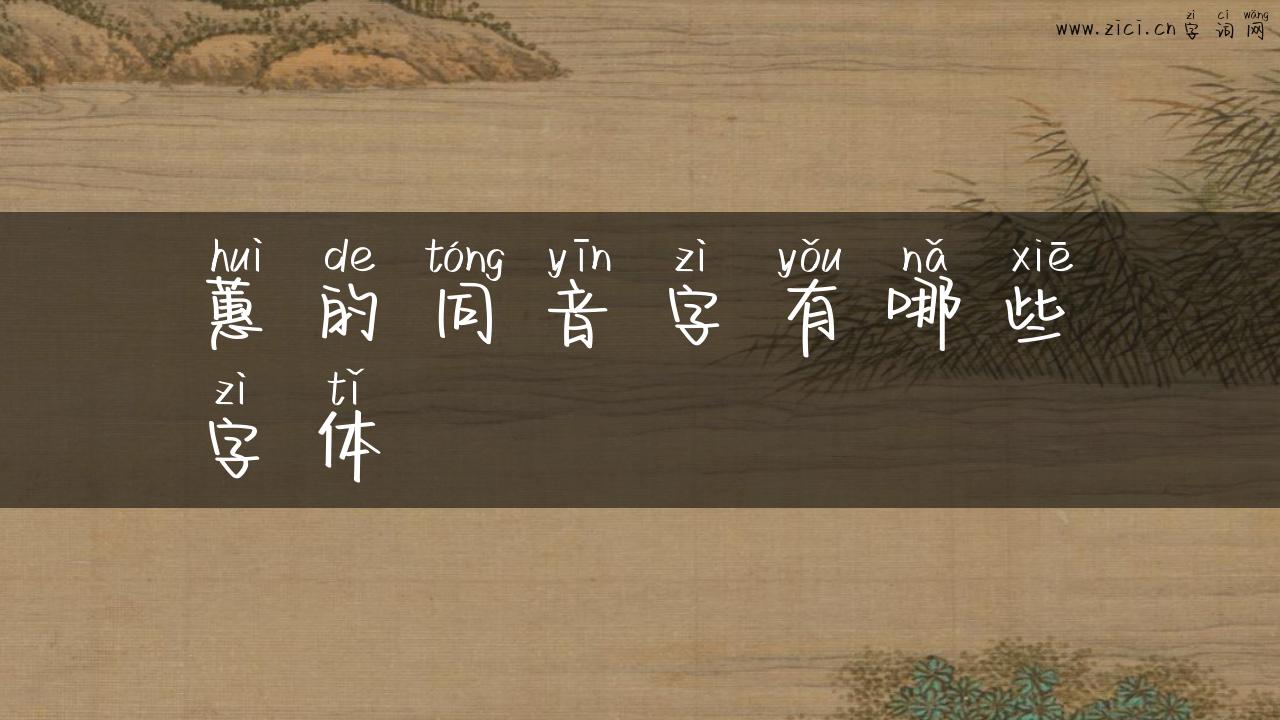 zì cí wǎng
www.zici.cn 字 词 网
huì de tóng yīn zì yǒu nǎ xiē
蕙 的 同 音 字 有 哪 些
zì tǐ
字 体